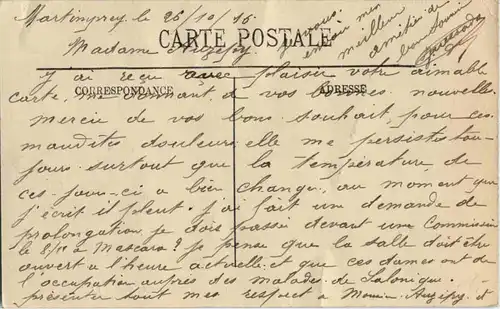 Martimprey le 26/10/16
Madame Auzépy
CARTE POSTALE
J'ai reçu avec plaisir votre aimable
CORRESPONDANCE
ADRESSE
carte, me donnant de vos bonnes nouvelles
merci de vos bons souhait, pour ces
maudites douleurs, elle me persistes tou-
jours surtout que la température, de
ces-jours-ci a bien changé, au moment que
j'écrit il pleut. J'ai fait une demande de
prolongation, je dois passée devant une Commission
le à Mascara? je pense que la salle doit être
ouvert a l'heure actuelle et que ces dames ont de
l'occupation auprès des malades de Salonique.
présenter tout mes respect à Auzépy et
à vous
envoie mon
meilleur
amitiés de
bon souvenir